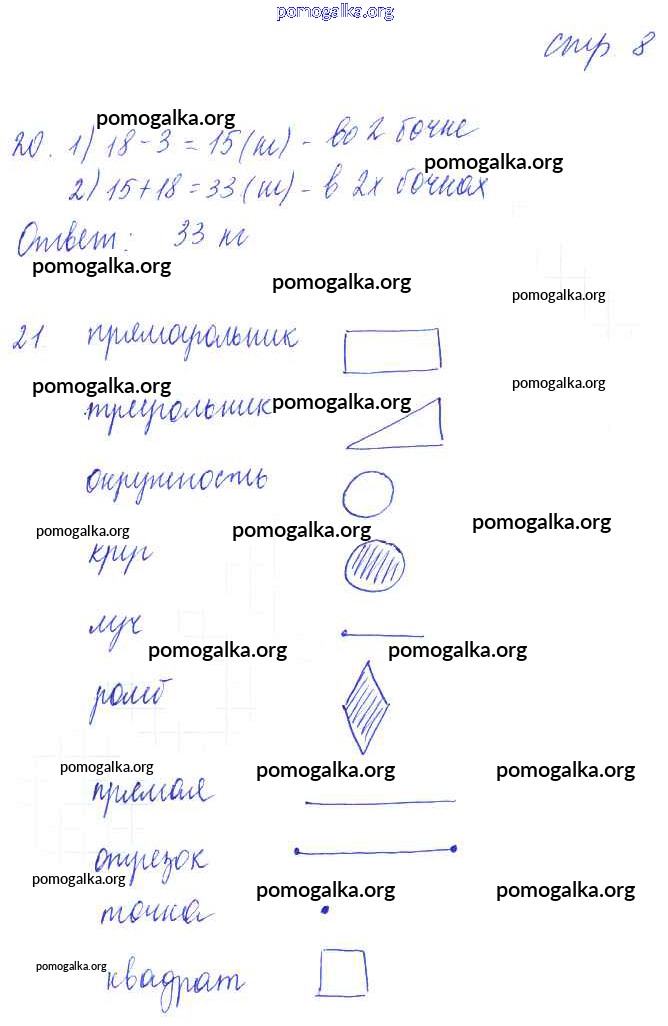 pomogalka.org
стр 8
pomogalka.org
20. 1) 18 - 3 = 15 (кг) - во 2 бочке
pomogalka.org
2) 15 + 18 = 33 (кг) - в 2х бочках
Ответ: 33 кг
pomogalka.org
pomogalka.org
pomogalka.org
21. прямоугольник
pomogalka.org
pomogalka.org
треугольник
pomogalka.org
окружность
pomogalka.org
pomogalka.org
pomogalka.org
круг
луч
pomogalka.org
pomogalka.org
ромб
pomogalka.org
pomogalka.org
pomogalka.org
прямая
отрезок
pomogalka.org
pomogalka.org
pomogalka.org
точка
pomogalka.org
квадрат